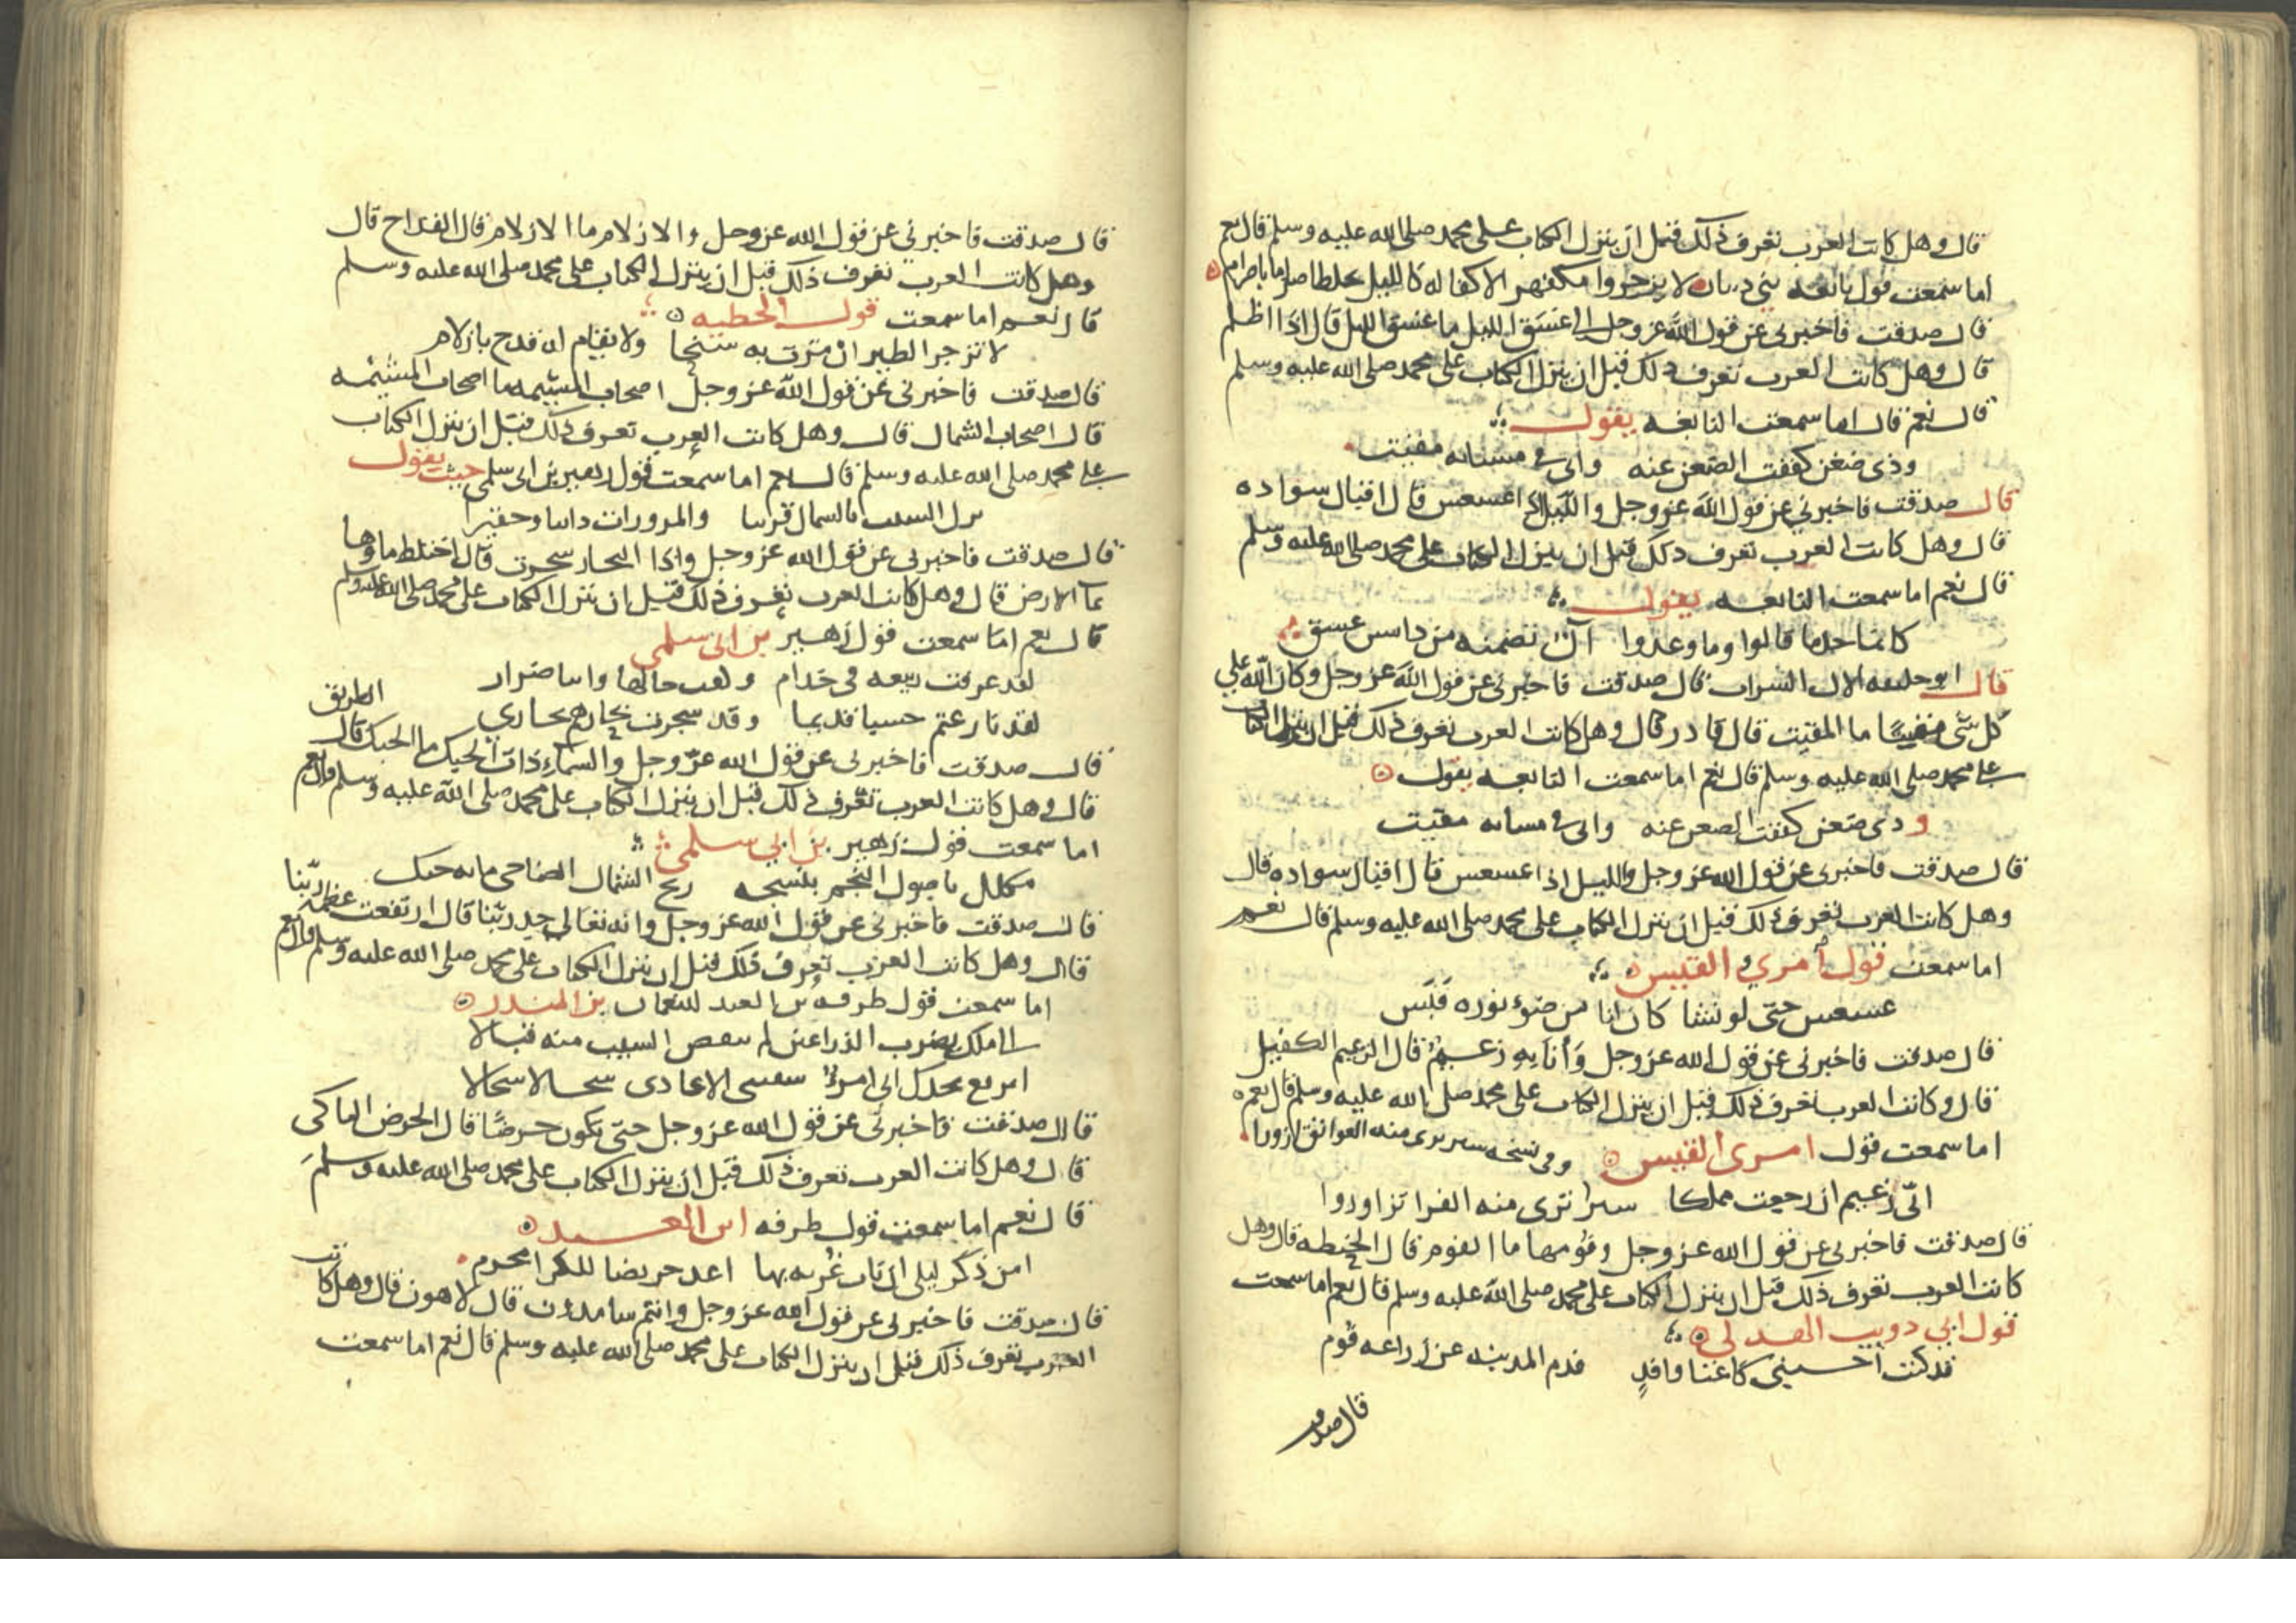 قال وهل كانت العرب تعرف ذلك قبل ان ينزل الكتاب على محمد صلى الله عليه وسلم قال نعم
اما سمعت قول نابغه بني لا يزجروا مكفهر الا كفا له كالليل يخلط اصراما باصرام
قال صدقت فاخبرني عن قول الله عز وجل الى غسق الليل ما غسق الليل قال اذا اظلم
قال وهل كانت العرب تعرف ذلك قبل ان ينزل الكتاب على محمد صلى الله عليه وسلم
قال نعم قال اما سمعت النابغه يقول
وذي ضغن كففت الضغن عنه واني في مسانه مقيت
قال صدقت فاخبرني عن قول الله عز وجل والليل اذا عسعس قال اقبال سواده
قال وهل كانت العرب تعرف ذلك قبل ان ينزل الكتاب على محمد صلى الله عليه وسلم
قال نعم اما سمعت النابغه يقول
كانما ما قالوا وما وعدوا آل تضمنه من دامس غسق
قال ابو خليفه الال السراب قال صدقت فاخبرني عن قول الله عز وجل وكان الله على
كل شى مقيتا ما المقيت قال قادر قال وهل كانت العرب تعرف ذلك قبل ان ينزل الكتاب
على محمد صلى الله عليه وسلم قال نعم اما سمعت النابغه يقول
وذي ضغن كففت الضغن عنه واني في مسانه مقيت
قال صدقت فاخبرني عن قول الله عز وجل والليل اذا عسعس قال اقبال سواده قال
وهل كانت العرب تعرف ذلك قبل ان ينزل الكتاب على محمد صلى الله عليه وسلم قال نعم
اما سمعت قول امرئ القيس
عسعس حتى لو نشا كان لنا من ضوء نوره قبس
قال صدقت فاخبرني عن قول الله عز وجل وأنا به زعيم قال الزعيم الكفيل
قال وكانت العرب تعرف ذلك قبل ان ينزل الكتاب على محمد صلى الله عليه وسلم قال نعم
اما سمعت قول امرى القيس وفي نسخه سير يرى منه العوانق ازورا
انّي زعيم ان رجعت مملكا سيرا ترى منه الفرا تزاوروا
قال صدقت فاخبرني عن قول الله عز وجل وفومها ما الفوم قال الحنطه قال وهل
كانت العرب تعرف ذلك قبل ان ينزل الكتاب على محمد صلى الله عليه وسلم قال نعم اما سمعت
قول ابي دويب الهدلي
قد كنت احسبني كاغنا وافدٍ قدم المدينه عن زراعه فوم
قال صدقت
قال صدقت فاخبرني عن قول الله عز وجل والازلام ما الازلام قال القداح قال
وهل كانت العرب تعرف ذلك قبل ان ينزل الكتاب على محمد صلى الله عليه وسلم
قال نعم اما سمعت قول الحطيه
لا تزجر الطير ان مرت به سنحا ولا يقام له قدح بازلام
قال صدقت فاخبرني عن قول الله عز وجل اصحاب المشيمه ما اصحاب المشيمه
قال اصحاب الشمال قال وهل كانت العرب تعرف ذلك قبل ان ينزل الكتاب
على محمد صلى الله عليه وسلم قال نعم اما سمعت قول زهير بن ابي سلمى حيث يقول
بالشمال والمرورات
قال صدقت فاخبرني عن قول الله عز وجل واذا البحار سجرت قال اختلط ماوها
بما الارض قال وهل كانت العرب تعرف ذلك قبل ان ينزل الكتاب على محمد صلى الله عليه وسلم
قال نعم اما سمعت قول زهير بن ابي سلمى
لقد عرفت ربيعه في جدام ضرار
لقد نازعتم حسبا قديما وقد سجرت بحارهم بحاري
قال صدقت فاخبرني عن قول الله عز وجل والسماء ذات الحبك ما الحبك قال الطريق
قال وهل كانت العرب تعرف ذلك قبل ان ينزل الكتاب على محمد صلى الله عليه وسلم قال نعم
اما سمعت قول زهير بن ابي سلمى
مكلل باصول النجم ينسجه ريح الشمال لضاحي مابه حبك
قال صدقت فاخبرني عن قول الله عز وجل وانه تعالى جد ربنا قال ارتفعت عظمة ربنا
قال وهل كانت العرب تعرف ذلك قبل ان ينزل الكتاب على محمد صلى الله عليه وسلم قال نعم
اما سمعت قول طرفه بن العبد للنعمان بن المندر
الى ملك يضرب الدراعين لم ينقص الشيب منه قبالا
الى امرئ الاعادي سجالا سجالا
قال صدقت فاخبرني عن قول الله عز وجل حتى تكون حرضا قال الحرض الباكي
قال وهل كانت العرب تعرف ذلك قبل ان ينزل الكتاب على محمد صلى الله عليه وسلم
قال نعم اما سمعت قول طرفه ابن العبد
امن ذكر ليلى ان نات غربه بها اعد حريضا للكرا محرم
قال صدقت فاخبرني عن قول الله عز وجل وانتم سامدون قال لاهون قال وهل كانت
العرب تعرف ذلك قبل ان ينزل الكتاب على محمد صلى الله عليه وسلم قال نعم اما سمعت